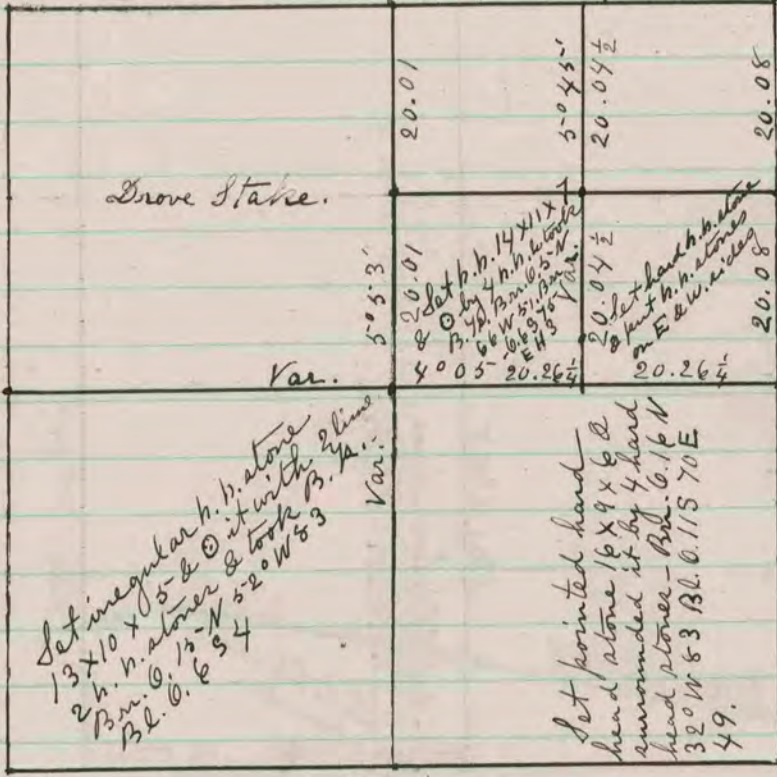 20.01
5°45'
20.04½
20.08
Drove Stake.
5°53'
Var.
20.01
Set h.h. 14x11x7
& ⊙ by 4 h.h. & took
B.
Var.
4°05 20.26¼
20.04½
Set hard h.h. stone
& put h.h. stones
on E & W. sides
20.08
20.26¼
Set irregular h.h. stone
13x10x5 & ⊙ it with 2 lime
2 h.h. stones & took B.
Brn. O. 15-N 52° W 83
Bl. O. 6 S 4
Var.
Set pointed hard
head stone 16x9x6 &
surrounded it by 4 hard
head stones - Brn. O. 16 N
32° W 83 Bl. O. 11 S 70 E
49.